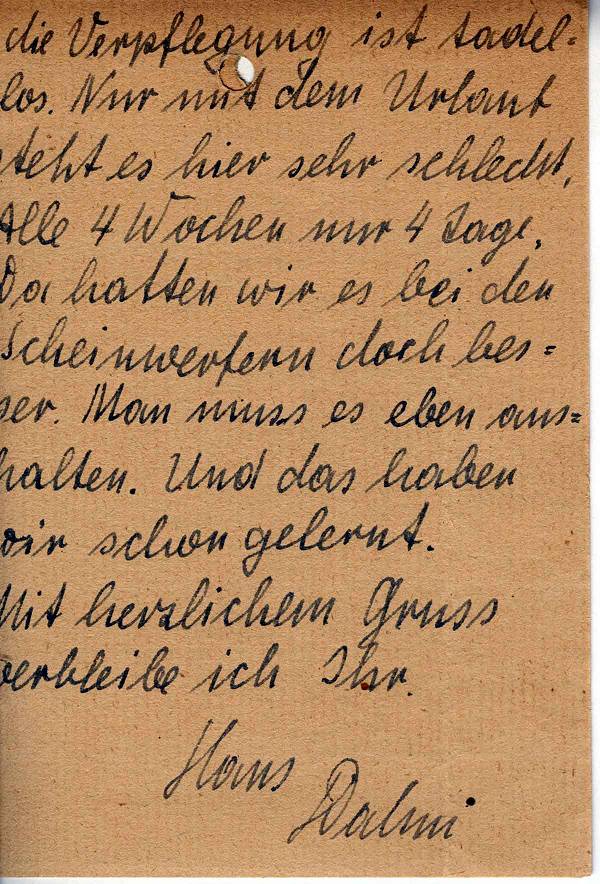 die Verpflegung ist tadel=
los. Nur mit dem Urlaub
steht es hier sehr schlecht,
Alle 4 Wochen nur 4 Tage.
Da hatten wir es bei den
Scheinwerfern doch bes=
ser. Man muss es eben aus=
halten. Und das haben
wir schon gelernt.
Mit herzlichem Gruss
verbleibe ich Ihr.
Hans